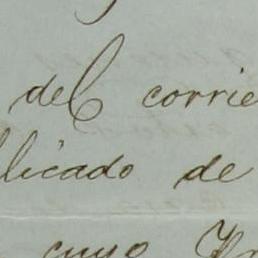 del corrie
licado de
cuyo